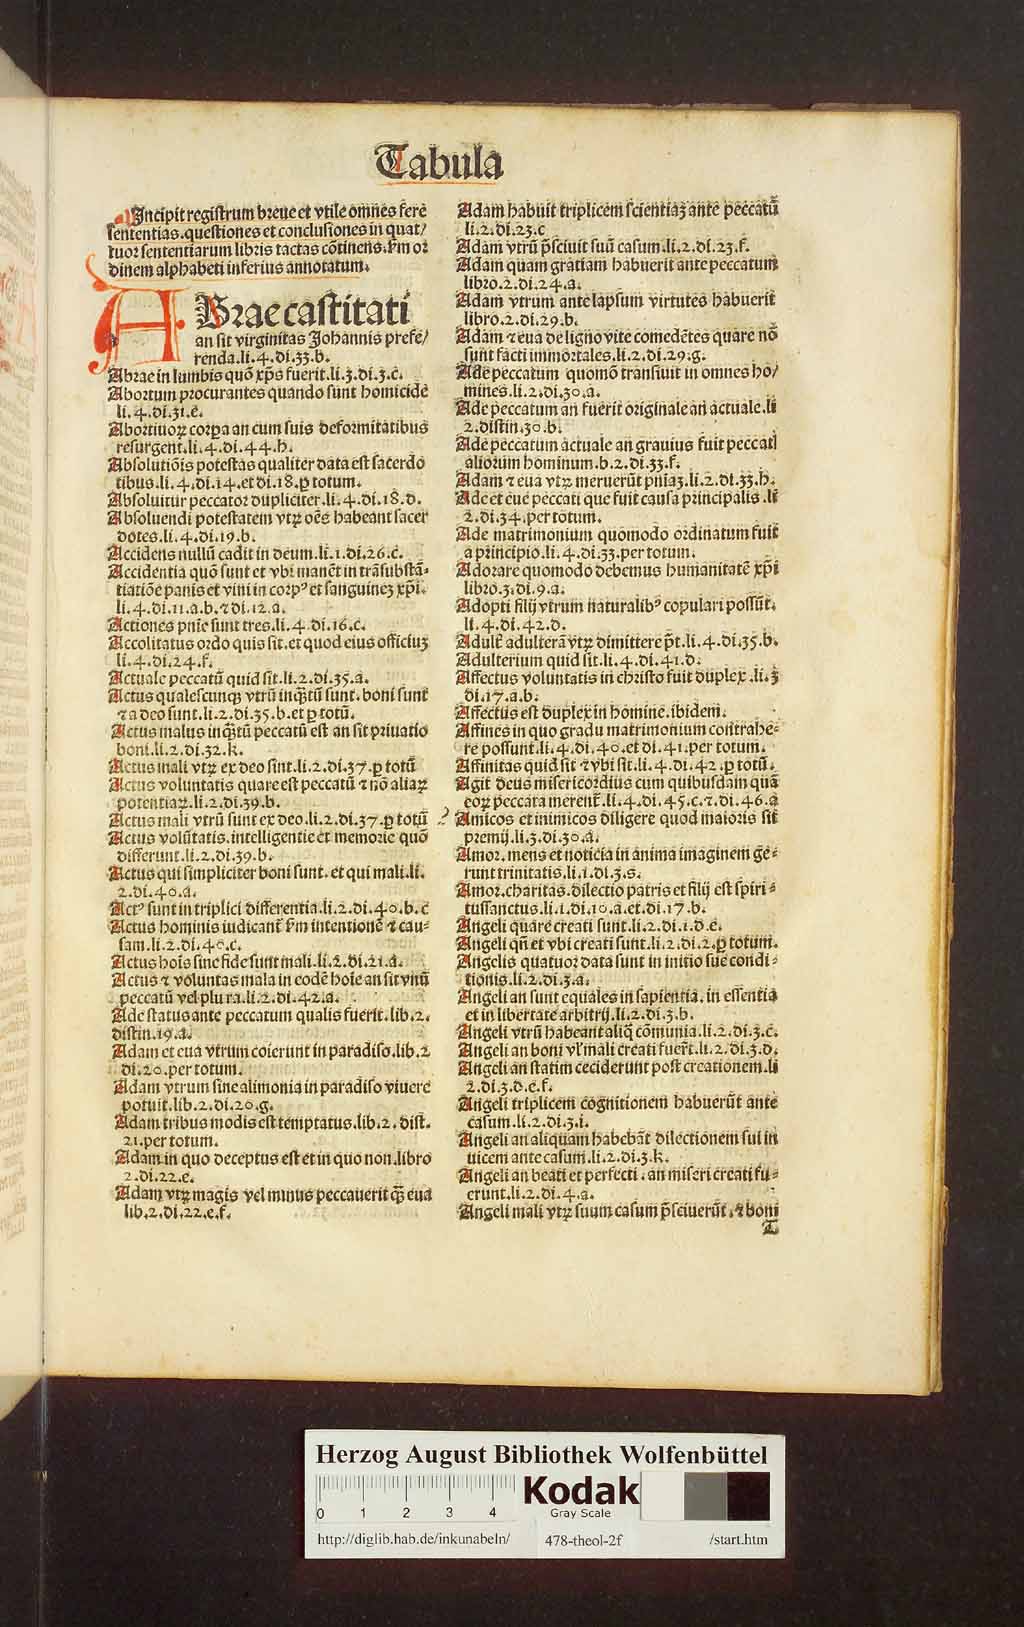 Tabula
Incipit registrum breue et vtile omnes ferē
sententias.questiones et conclusiones in quat/
tuor sententiarum libris tactas cōtinens.fm or
dinem alphabeti inferius annotatum.
ABrae castitati
an sit virginitas Johannis prefe/
renda.li.4.di.33.b.
Abrae in lumbis quō xp̄s fuerit.li.3.di.3.c.
Abortum procurantes quando sunt homicide
li.4.di.31.e.
Abortiuoꝝ corpa an cum suis deformitatibus
resurgent.li.4.di.44.h.
Absolutiōis potestas qualiter data est sacerdo
tibus.li.4.di.14.et di.18.ꝑ totum.
Absoluitur peccator dupliciter.li.4.di.18.d.
Absoluendi potestatem vtꝝ oēs habeant sacer
dotes.li.4.di.19.b.
Accidens nullū cadit in deum.li.1.di.26.c.
Accidentia quō sunt et vbi manēt in trāsubstā-
tiatiōe panis et vini in corpꝰ et sanguineꝫ xp̄i.
li.4.di.11.a.b.⁊ di.12.a.
Actiones pnīe sunt tres.li.4.di.16.c.
Accolitatus ordo quis sit.et quod eius officiuꝫ
li.4.di.24.f.
Actuale peccatū quid sit.li.2.di.35.a.
Actus qualescunqꝫ vtrū inq̄tū sunt.boni sunt
⁊ a deo sunt.li.2.di.35.b.et ꝑ totū.
Actus malus inq̄tū peccatū est an sit priuatio
boni.li.2.di.32.k.
Actus mali vtꝝ ex deo sint.li.2.di.37.ꝑ totū
Actus voluntatis quare est peccatū ⁊ nō aliaꝝ
potentiaꝝ.li.2.di.39.b.
Actus mali vtrū sunt ex deo.li.2.di.37.ꝑ totū
Actus volūtatis.intelligentie et memorie quō
differunt.li.2.di.39.b.
Actus qui simpliciter boni sunt.et qui mali.li.
2.di.40.a.
Actꝰ sunt in triplici differentia.li.2.di.40.b.c
Actus hominis iudicant̄ fm intentionē ⁊ cau-
sam.li.2.di.40.c.
Actus hoīs sine fide sunt mali.li.2.di.21.a.
Actus ⁊ voluntas mala in eodē hoīe an sit vnū
peccatū vel plura.li.2.di.42.a.
Ade status ante peccatum qualis fuerit.lib.2.
distin.19.a.
Adam et eua vtrum coierunt in paradiso.lib.2
di.20.per totum.
Adam vtrum sine alimonia in paradiso viuere
potuit.lib.2.di.20.g.
Adam tribus modis est temptatus.lib.2.dist.
21.per totum.
Adam in quo deceptus est et in quo non.libro
2.di.22.e.
Adam vtꝝ magis vel minus peccauerit q̄ȝ eua
lib.2.di.22.e.f.
Adam habuit triplicem scientiaꝫ ante peccatū
li.2.di.23.c
Adam vtrū p̄sciuit suū casum.li.2.di.23.f.
Adam quam gratiam habuerit ante peccatum
libro.2.di.24.a.
Adam vtrum ante lapsum virtutes habuerit
libro.2.di.29.b.
Adam ⁊ eua de ligno vite comedētes quare nō
sunt facti immortales.li.2.di.29.g.
Ade peccatum quomō transiuit in omnes ho/
mines.li.2.di.30.a.
Ade peccatum an fuerit originale an actuale.li
2.distin.30.b.
Ade peccatum actuale an grauius fuit peccatl
aliorum hominum.b.2.di.33.f.
Adam ⁊ eua vtꝝ meruerūt pniaꝫ.li.2.di.33.h.
Ade et eue peccati que fuit causa principalis.li
2.di.34.per totum.
Ade matrimonium quomodo ordinatum fuit
a principio.li.4.di.33.per totum.
Adorare quomodo debemus humanitatē xp̄i
libro.3.di.9.a.
Adopti filij vtrum naturalibꝰ copulari possūt.
li.4.di.42.d.
Adult̄ adulterā vtꝝ dimittere p̄t.li.4.di.35.b.
Adulterium quid sit.li.4.di.41.d.
Affectus voluntatis in christo fuit duplex.li.3
di.17.a.b.
Affectus est duplex in homine.ibidem.
Affines in quo gradu matrimonium contrahe-
re possunt.li.4.di.40.et di.41.per totum.
Affinitas quid sit ⁊ vbi sit.li.4.di.42.ꝑ totū.
Agit deus misericordius cum quibusdam quā
eoꝝ peccata merent̄.li.4.di.45.c.⁊.di.46.a
Amicos et inimicos diligere quod maioris sit
premij.li.3.di.30.a.
Amor.mens et noticia in anima imaginem gē-
runt trinitatis.li.1.di.3.s.
Amor.charitas.dilectio patris et filij est spiri-
tussanctus.li.1.di.10.a.et.di.17.b.
Angeli quare creati sunt.li.2.di.1.d.e.
Angeli qn̄ et vbi creati sunt.li.2.di.2.ꝑ totum.
Angelis quatuor data sunt in initio sue condi-
tionis.li.2.di.3.a.
Angeli an sunt equales in sapientia.in essentia
et in libertate arbitrij.li.2.di.3.b.
Angeli vtrū habeant aliq̄ cōmunia.li.2.di.3.c.
Angeli an boni vl̄ mali creati fuer̄t.li.2.di.3.d.
Angeli an statim ceciderunt post creationem.li
2.di.3.d.e.f.
Angeli triplicem cognitionem habuerūt ante
casum.li.2.di.3.i.
Angeli an aliquam habebāt dilectionem sui in
uicem ante casum.li.2.di.3.k.
Angeli an beati et perfecti.an miseri creati fu-
erunt.li.2.di.4.a.
Angeli mali vtꝝ suum casum p̄sciuerūt.⁊ boni
T
Herzog August Bibliothek Wolfenbüttel
0 1 2 3 4
Kodak
Gray Scale
http://diglib.hab.de/inkunabeln/ 478-theol-2f /start.htm